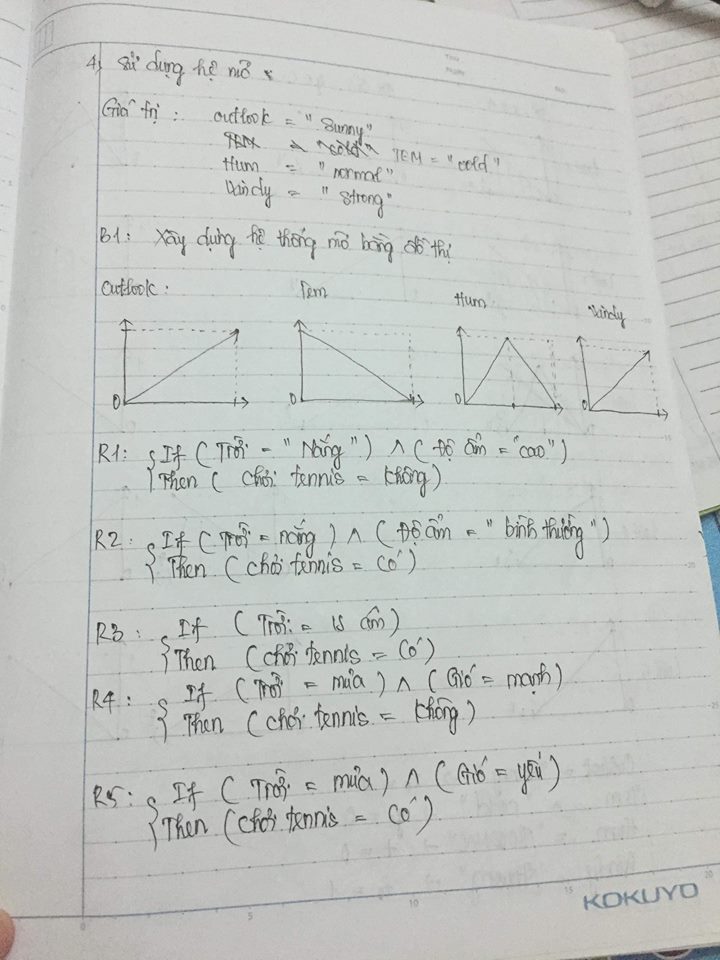 4) Sử dụng hệ mờ
Giá trị : Outlook = "Sunny"
TEM = "cold"
Hum = "normal"
Windy = "Strong"
B1: Xây dựng hệ thống mờ bằng đồ thị
Outlook :
Tem
Hum
Windy
0
0
0
0
R1: If (Trời = "Nắng") ∧ (Độ ẩm = "cao")
Then ( chơi tennis = không)
R2: If (Trời = nắng) ∧ (Độ ẩm = "bình thường")
Then (chơi tennis = Có)
R3: If (Trời = u ám)
Then (chơi tennis = Có)
R4: If (Trời = mưa) ∧ (Gió = mạnh)
Then (chơi tennis = không)
R5: If (Trời = mưa) ∧ (Gió = yếu)
Then (chơi tennis = Có)
0 5 10 15 20
KOKUYO